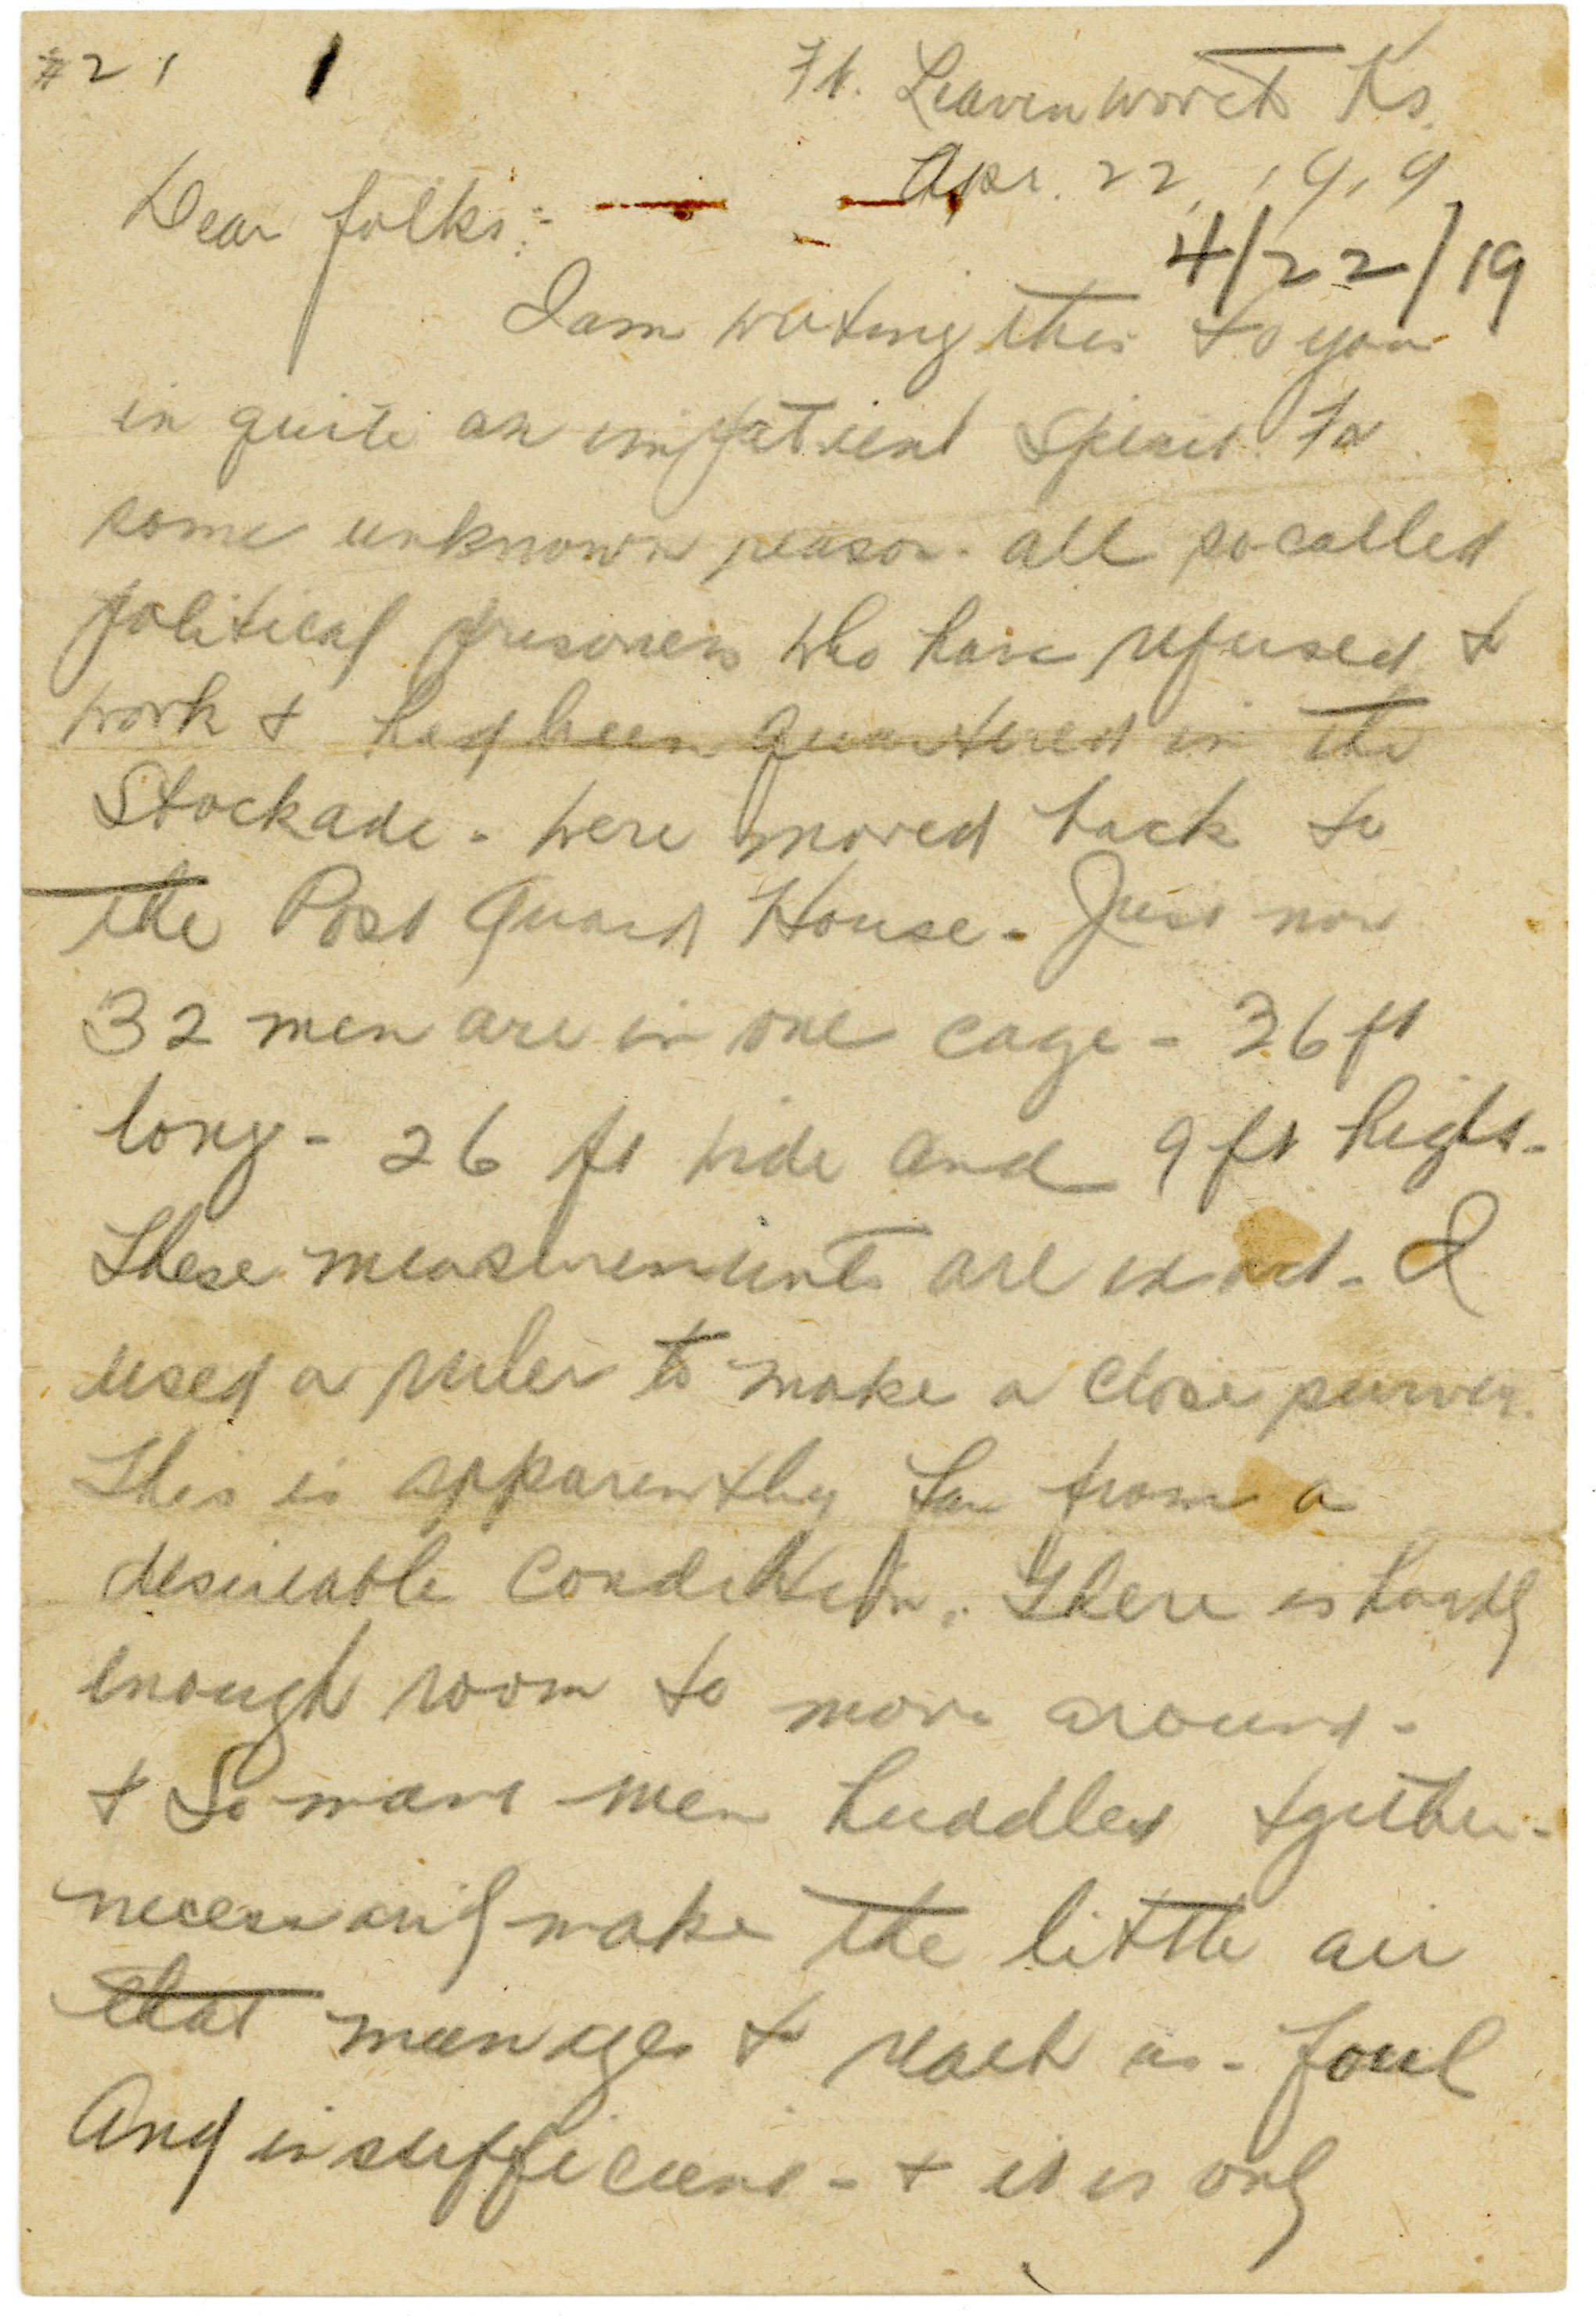 #21 1 Ft. Leavenworth Ks.
Apr. 22, 1919
Dear folks:-
4/22/19
I am writing this to you
in quite an impatient spirit. Fo
some unknown reason - all so called
political prisoners who have refused to
work & had been quartered in the
Stockade - were moved back to
the Post Guard House - Just now
32 men are in one cage - 36 ft
long - 26 ft wide and 9 ft high -
These measurements are exact - I
used a ruler to make a close survey.
This is apparently far from a
desireable condition. There is hardly
enough room to move around -
& So many men huddled tgether -
necessarily make the little air
that manages to reach us - foul
And insufficient - & it is only